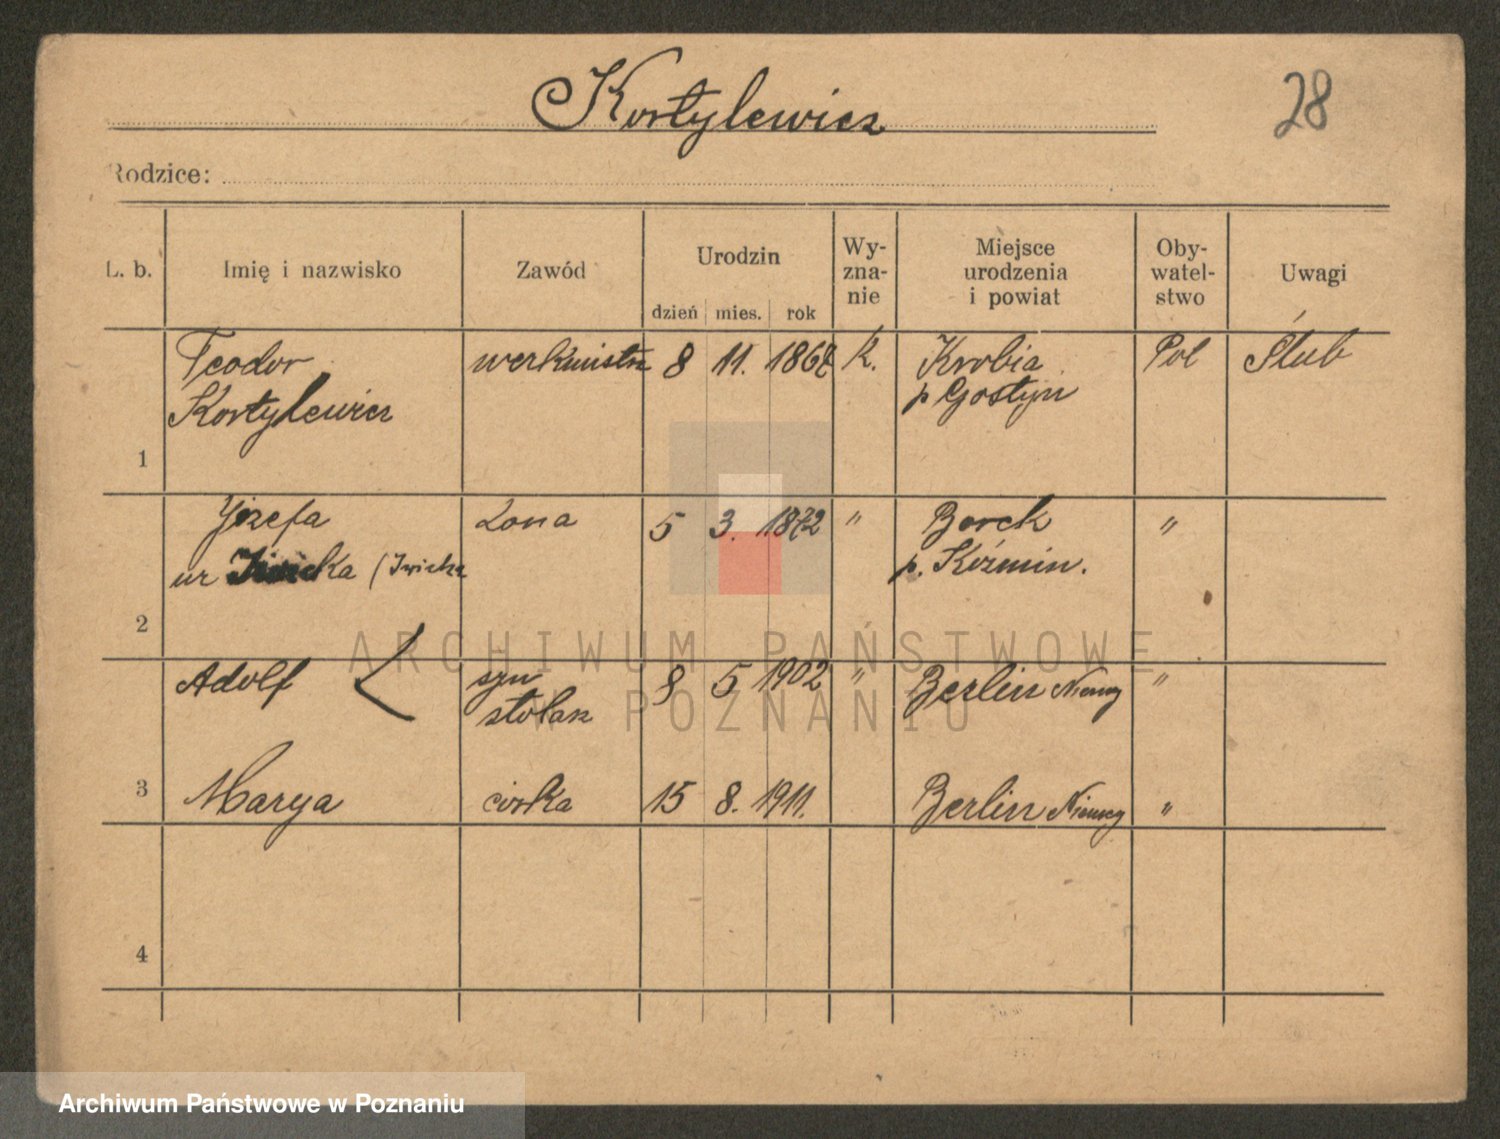 Kortylewicz
28
Rodzice:
L. b.
Imię i nazwisko
Zawód
Urodzin
dzień mies. rok
Wy-
zna-
nie
Miejsce
urodzenia
i powiat
Oby-
watel-
stwo
Uwagi
1
Teodor
Kortylewicz
werkmistrz
8 11. 1867
k.
Krobia
p Gostyn
Pol
Ślub
2
Józefa
ur (Iwicka
żona
5 3. 1872
"
Borek
p. Koźmin.
"
3
Adolf
syn
stolarz
8 5 1902
"
Berlin Niemcy
"
Marya
córka
15 8. 1911.
Berlin Niemcy
"
4
ARCHIWUM PAŃSTWOWE
W POZNANIU
Archiwum Państwowe w Poznaniu